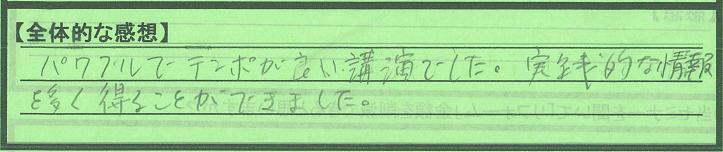 【全体的な感想】
パワフルでテンポが良い講演でした。実践的な情報
を多く得ることができました。